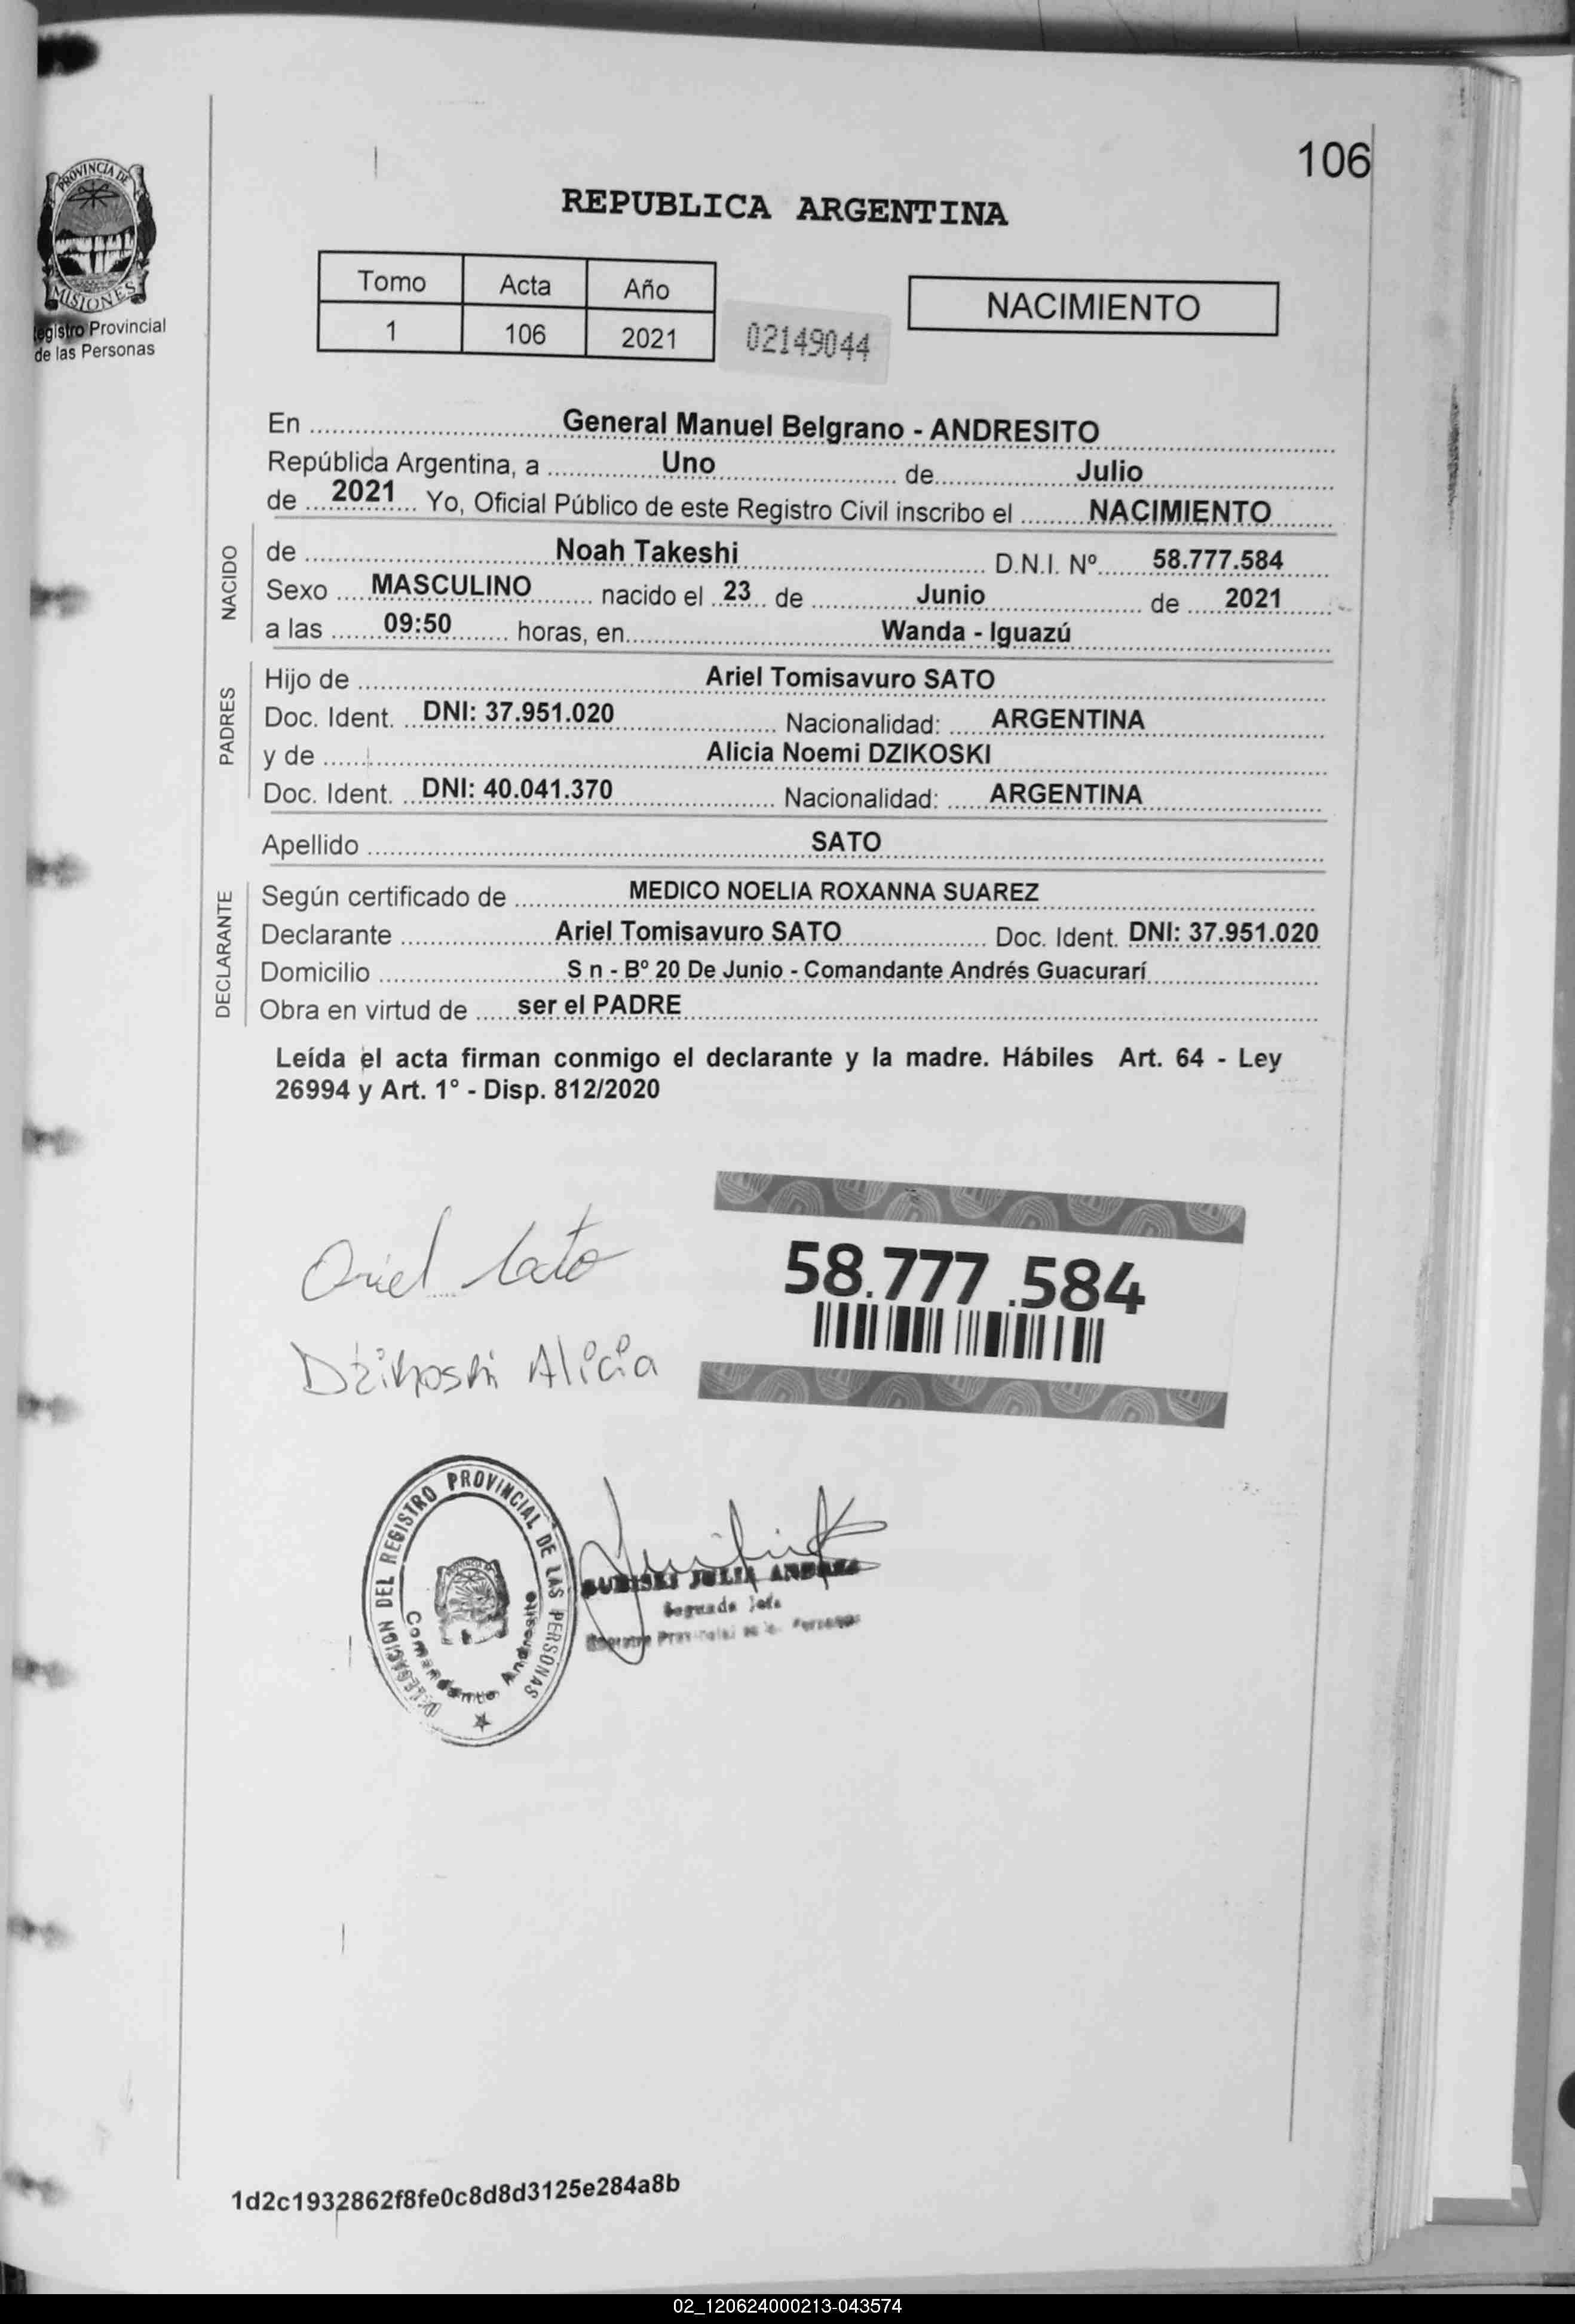 106
PROVINCIA DE
MISIONES
Registro Provincial
de las Personas
REPUBLICA ARGENTINA
Tomo Acta Año
1 106 2021
02149044
NACIMIENTO
En General Manuel Belgrano - ANDRESITO
República Argentina, a Uno de Julio
de 2021 Yo, Oficial Público de este Registro Civil inscribo el NACIMIENTO
NACIDO
de Noah Takeshi D.N.I. Nº 58.777.584
Sexo MASCULINO nacido el 23 de Junio de 2021
a las 09:50 horas, en Wanda - Iguazú
PADRES
Hijo de Ariel Tomisavuro SATO
Doc. Ident. DNI: 37.951.020 Nacionalidad: ARGENTINA
y de Alicia Noemi DZIKOSKI
Doc. Ident. DNI: 40.041.370 Nacionalidad: ARGENTINA
Apellido SATO
DECLARANTE
Según certificado de MEDICO NOELIA ROXANNA SUAREZ
Declarante Ariel Tomisavuro SATO Doc. Ident. DNI: 37.951.020
Domicilio S n - Bº 20 De Junio - Comandante Andrés Guacurarí
Obra en virtud de ser el PADRE
Leída el acta firman conmigo el declarante y la madre. Hábiles Art. 64 - Ley
26994 y Art. 1º - Disp. 812/2020
Ariel Sato
58.777.584
Dzikoski Alicia
DELEGACION DEL REGISTRO PROVINCIAL DE LAS PERSONAS
Comandante Andresito
JULIA
Segunda Jefa
Registro Provincial de las Personas
1d2c1932862f8fe0c8d8d3125e284a8b
02_120624000213-043574